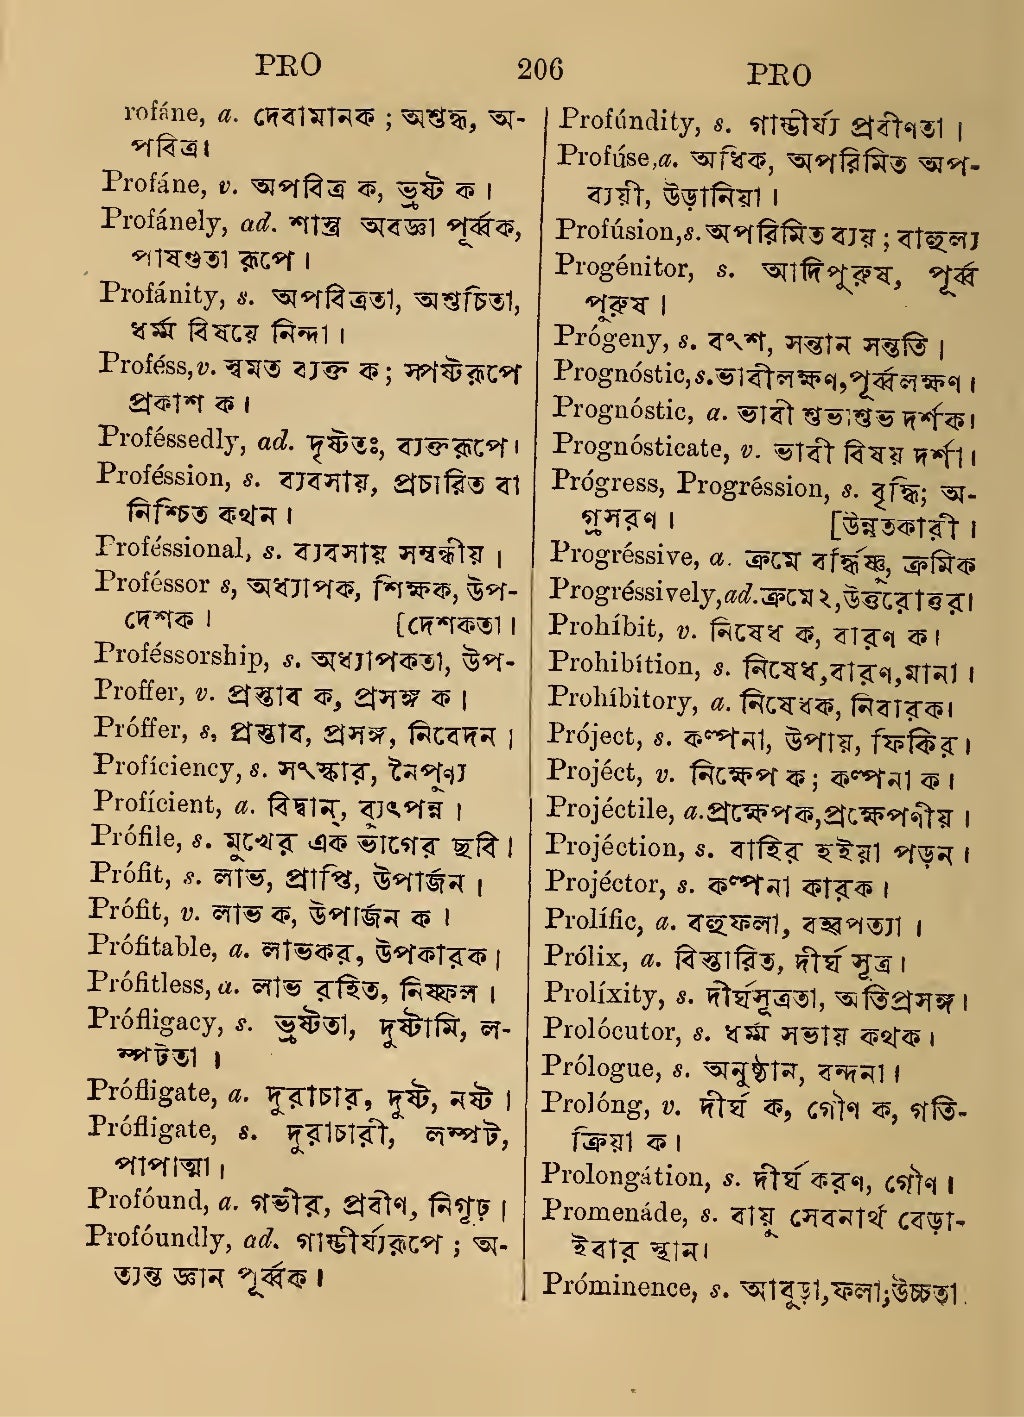 PRO 206 PRO
rofáne, a. দেবামানক ; অশুদ্ধ, অ-
পবিত্র।
Profáne, v. অপবিত্র ক, ভ্রুষ্ট ক।
Profánely, ad. শাস্ত্র অবজ্ঞা পূর্ব্বক,
পাষণ্ডতা রূপে।
Profánity, s. অপবিত্রতা, অশুচিতা,
ধর্ম্ম বিষয়ে নিন্দা।
Proféss, v. স্বমত ব্যক্ত ক; স্পষ্টরূপে
প্রকাশ ক।
Proféssedly, ad. দৃষ্টতঃ, ব্যক্তরূপে।
Proféssion, s. ব্যবসায়, প্রচারিত বা
নিশ্চিত কথন।
Proféssional, s. ব্যবসায় সম্বন্ধীয়।
Proféssor s, অধ্যাপক, শিক্ষক, উপ-
দেশক। [দেশকতা।
Proféssorship, s. অধ্যাপকতা, উপ-
Proffer, v. প্রস্তাব ক, প্রসঙ্গ ক।
Próffer, s, প্রস্তাব, প্রসঙ্গ, নিবেদন।
Profíciency, s. সৎস্কার, নৈপুণ্য
Profícient, a. বিদ্বান্, ব্যুৎপন্ন।
Prófile, s. মুখের এক ভাগের ছবি।
Prófit, s. লাভ, প্রাপ্তি, উপার্জন।
Prófit, v. লাভ ক, উপার্জন ক।
Prófitable, a. লাভকর, উপকারক।
Prófitless, a. লাভ রহিত, নিষ্ফল।
Prófligacy, s. ভ্রুষ্টতা, দুষ্টামি, ল-
ম্পটতা।
Prófligate, a. দুরাচার, দুষ্ট, নষ্ট।
Prófligate, s. দুরাচারী, লম্পট,
পাপাত্মা।
Profóund, a. গভীর, প্রবীণ, নিগূঢ়।
Profóundly, ad. গাম্ভীর্য্যরূপে ; অ-
ত্যন্ত জ্ঞান পূর্ব্বক।
Profúndity, s. গাম্ভীর্য্য প্রবীণতা।
Profúse, a. অধিক, অপরিমিত অপ-
ব্যয়ী, উড়ানিয়া।
Profúsion, s. অপরিমিত ব্যয় ; বাহুল্য
Progénitor, s. আদিপুরুষ, পূর্ব্ব
পুরুষ।
Prógeny, s. বৎশ, সন্তান সন্ততি।
Prognóstic, s. ভাবীলক্ষণ, পূর্ব্বলক্ষণ।
Prognóstic, a. ভাবী শুভাশুভ দর্শক।
Prognósticate, v. ভাবী বিষয় দর্শা।
Prógress, Progréssion, s. বৃদ্ধি; অ-
গ্রুসরণ। [উন্নতকারী।
Progréssive, a. ক্রমে বর্দ্ধিষ্ণু, ক্রমিক
Progréssively, ad. ক্রমে২, উত্তরোত্তর।
Prohíbit, v. নিষেধ ক, বারণ ক।
Prohibítion, s. নিষেধ, বারণ, মানা।
Prohíbitory, a. নিষেধক, নিবারক।
Próject, s. কল্পনা, উপায়, ফিকির।
Projéct, v. নিক্ষেপ ক; কল্পনা ক।
Projéctile, a. প্রক্ষেপক, প্রক্ষেপণীয়।
Projéction, s. বাহির হইয়া পড়ন।
Projéctor, s. কল্পনা কারক।
Prolífic, a. বহুফলা, বহ্বপত্যা।
Prólix, a. বিস্তারিত, দীর্ঘ সূত্র।
Prolíxity, s. দীর্ঘসূত্রতা, অতিপ্রসঙ্গ।
Prolócutor, s. ধর্ম্ম সভায় কথক।
Prólogue, s. অনুষ্ঠান, বন্দনা।
Prolóng, v. দীর্ঘ ক, গৌণ ক, গতি-
ক্রিয়া ক।
Prolongátion, s. দীর্ঘ করণ, গৌণ।
Promenáde, s. বায়ু সেবনার্থ বেড়া-
ইবার স্থান।
Próminence, s. আবুড়া, ফলা; উচ্চতা.